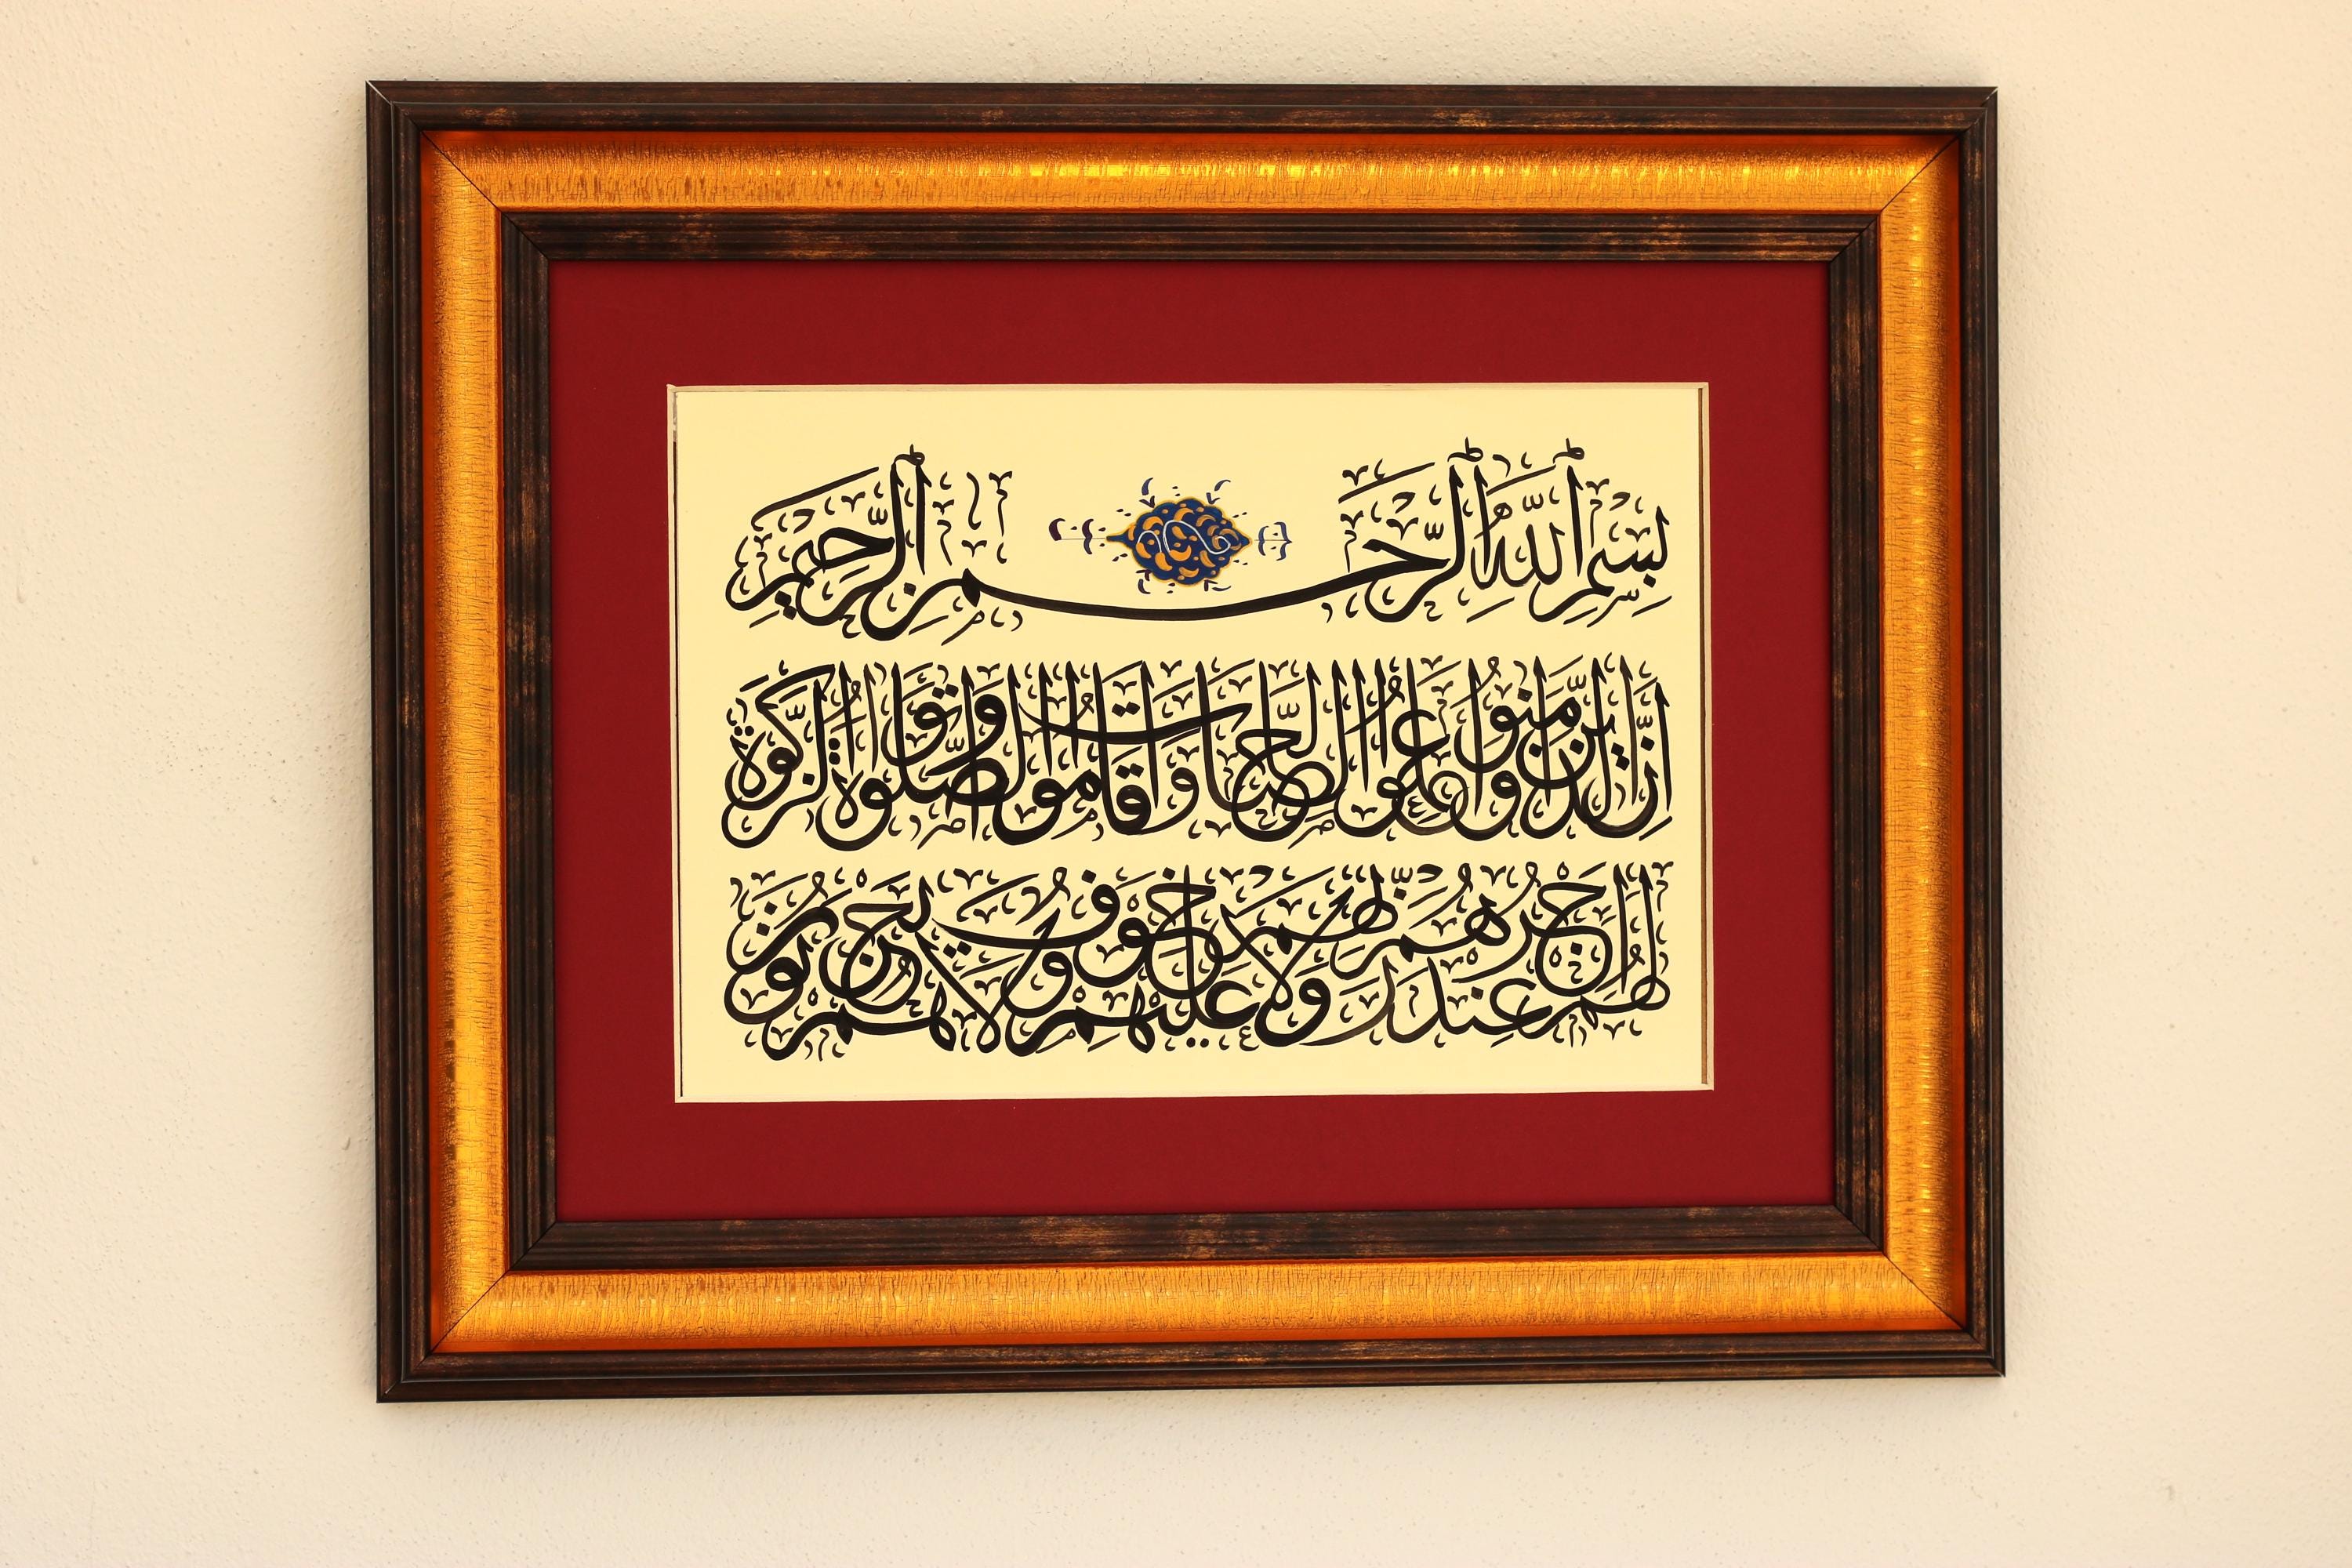 بِسْمِ اللهِ الرَّحْمٰنِ الرَّحِيمِ
اِنَّ الَّذِينَ اٰمَنُوا وَعَمِلُوا الصَّالِحَاتِ وَاَقَامُوا الصَّلٰوةَ وَاٰتَوُا الزَّكٰوةَ
لَهُمْ اَجْرُهُمْ عِنْدَ رَبِّهِمْ وَلَا خَوْفٌ عَلَيْهِمْ وَلَا هُمْ يَحْزَنُونَ